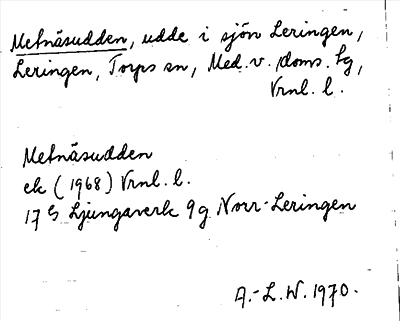 Metnäsudden, udde i sjön Leringen,
Leringen, Torps sn, Med. v. doms. tg,
Vrnl. l.
Metnäsudden
ek (1968) Vrnl. l.
17 G Ljungaverk 9 g Norr-Leringen
A.-L. W. 1970.